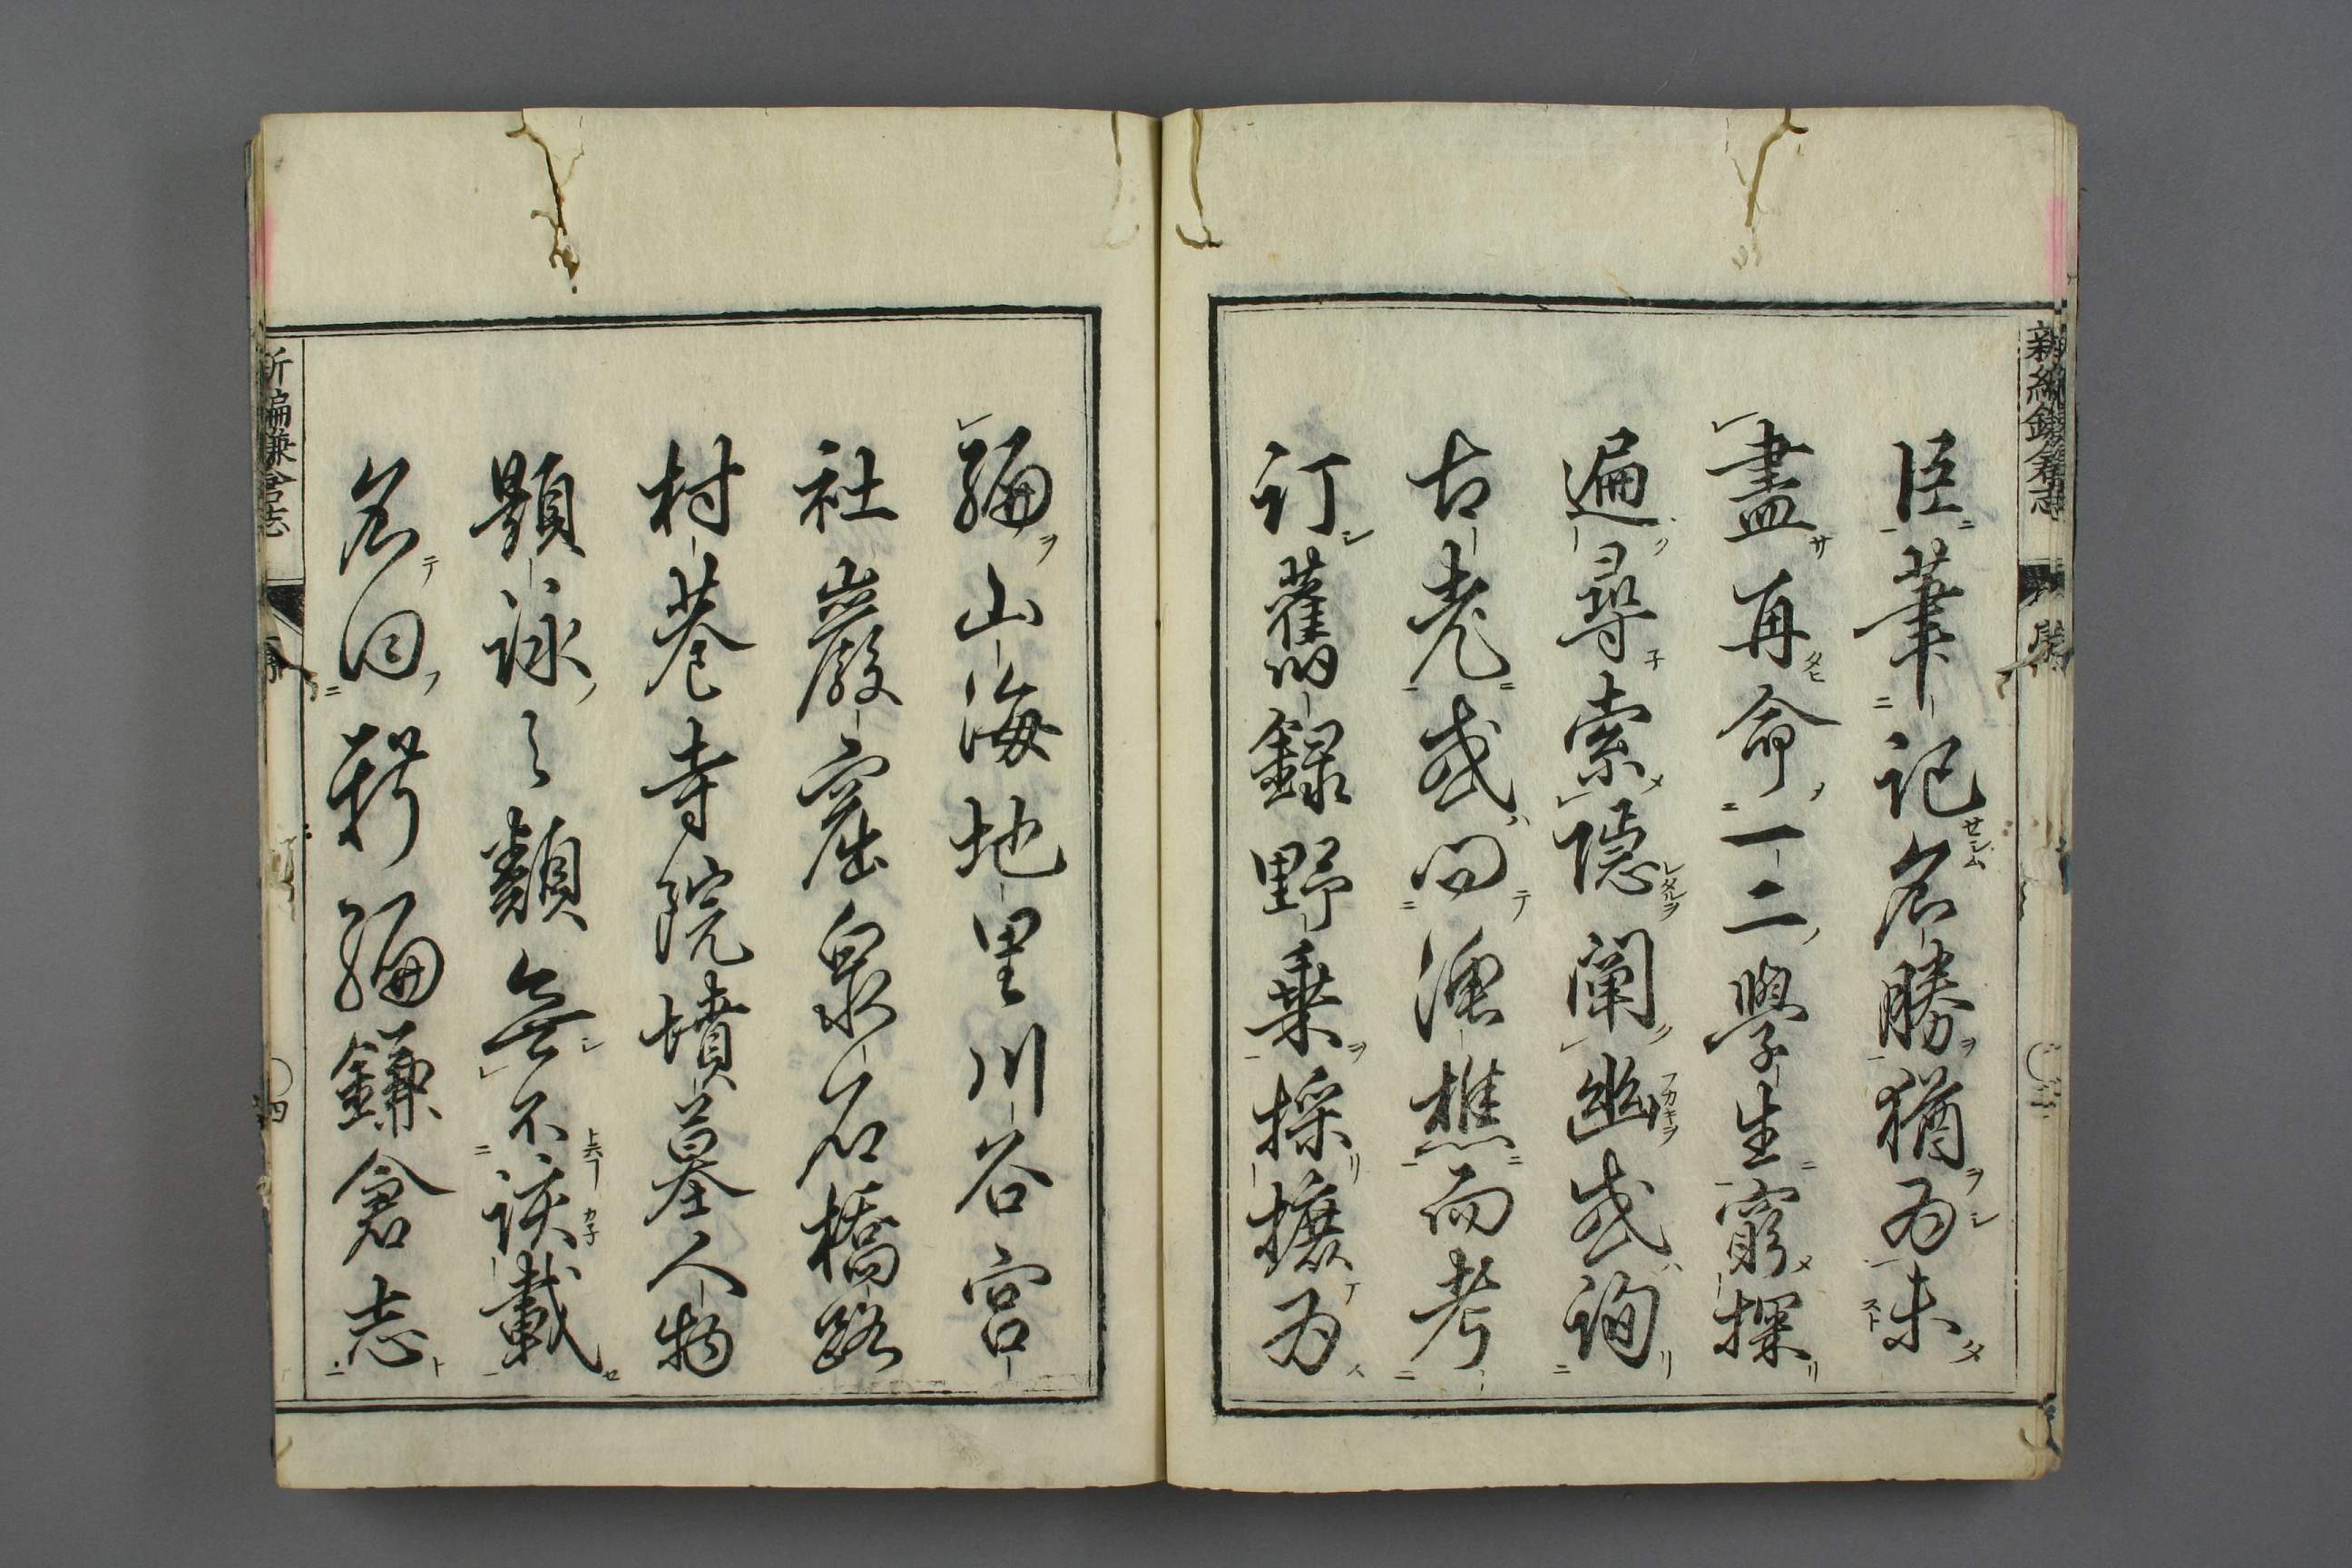 臣筆記名勝猶為未
盡再命一二學生窮探
遍尋索隠闡幽或詢
古老或問漁樵而考
訂舊録野乗採摭為
編山海地里川谷宮
社巖窟泉石橋路
村巷寺院墳墓人物
題詠之類無不該載
名曰新編鎌倉志
新編鎌倉志
序
四